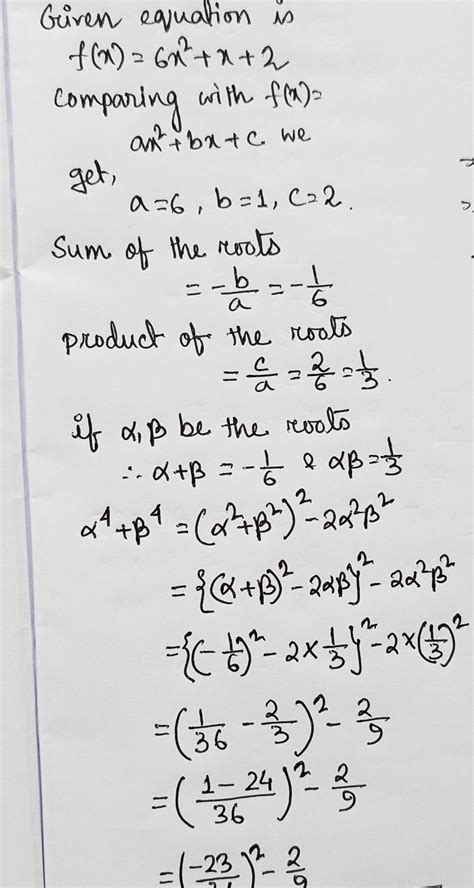 Given equation is
f(x) = 6x² + x + 2
comparing with f(x) =
ax² + bx + c we
get,
a = 6, b = 1, c = 2.
Sum of the roots
= -b/a = -1/6
product of the roots
= c/a = 2/6 = 1/3.
if α, β be the roots
∴ α + β = -1/6 & αβ = 1/3
α⁴ + β⁴ = (α² + β²)² - 2α²β²
= {(α + β)² - 2αβ}² - 2α²β²
= {(-1/6)² - 2 × 1/3}² - 2 × (1/3)²
= (1/36 - 2/3)² - 2/9
= ((1 - 24)/36)² - 2/9
= (-23/)² - 2/9